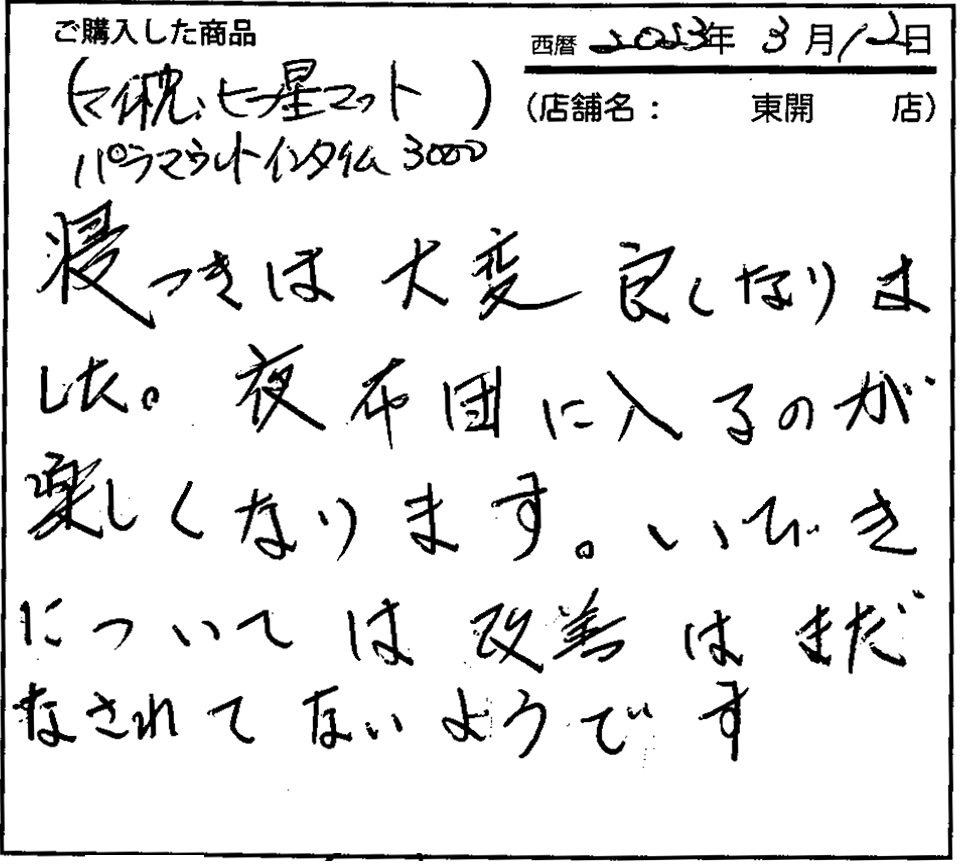 ご購入した商品
西暦 2023年 3月12日
(マイ枕、七星マット)
(店舗名: 東開 店)
パラマウントインタイム3000
寝つきは大変良くなりま
した。夜布団に入るのが
楽しくなります。いびき
については改善はまだ
なされてないようです